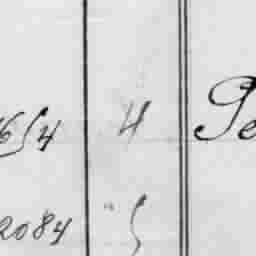 654 4 Pe
2084 " 5